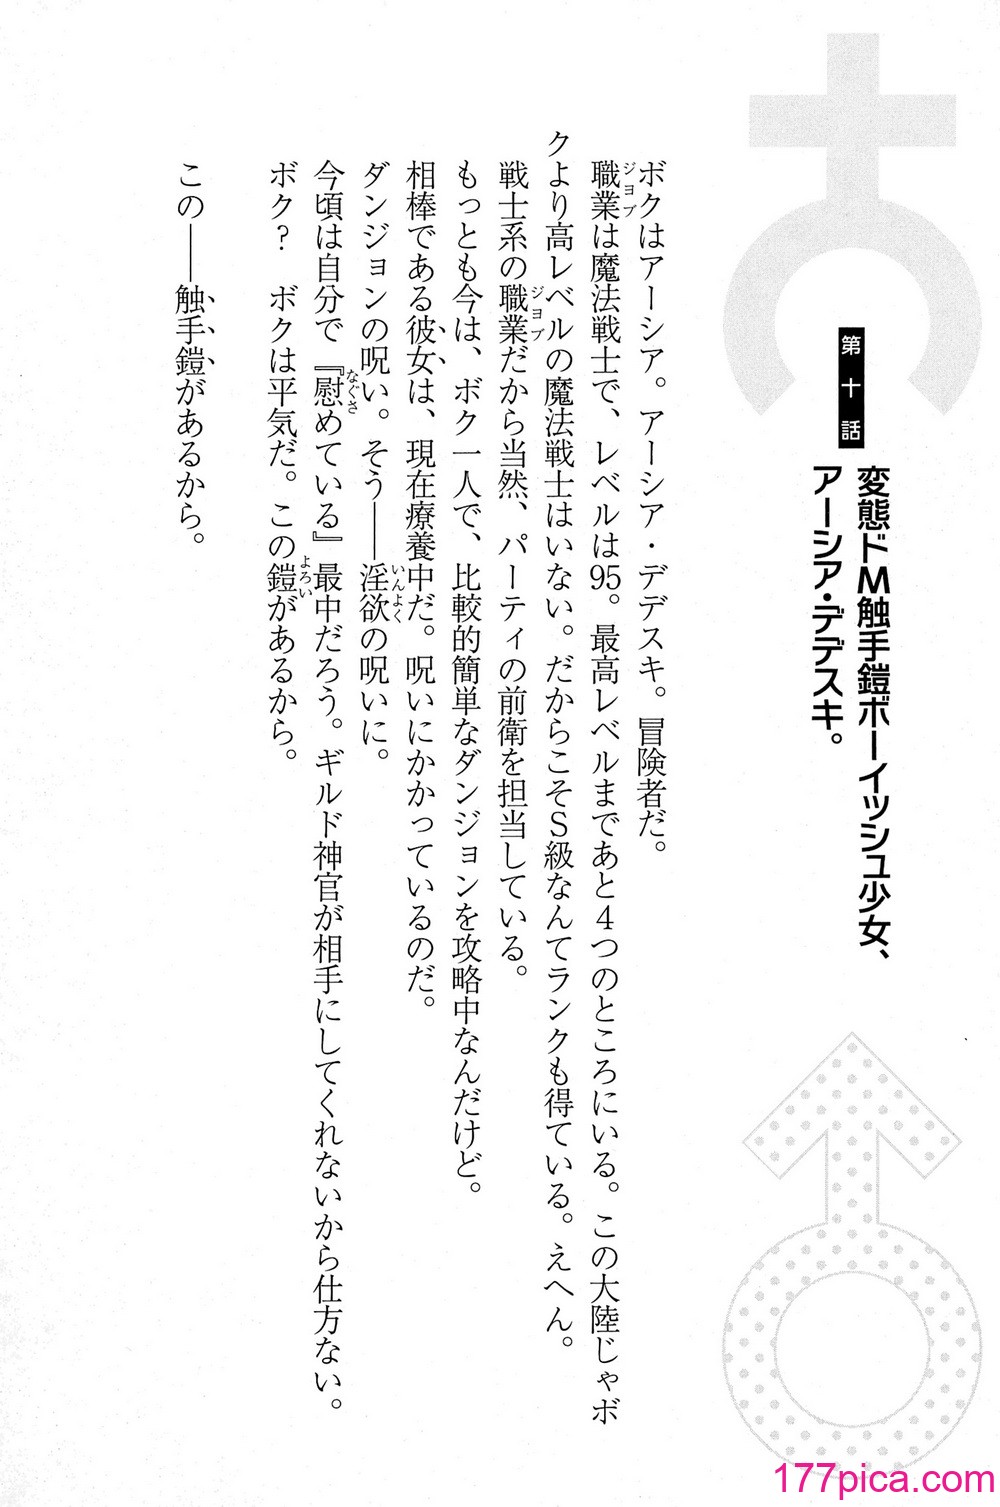 第十話
変態ドM触手鎧ボーイッシュ少女、
アーシア・デデスキ。
ボクはアーシア。アーシア・デデスキ。冒険者だ。
職業は魔法戦士で、レベルは95。最高レベルまであと4つのところにいる。この大陸じゃボ
クより高レベルの魔法戦士はいない。だからこそS級なんてランクも得ている。えへん。
戦士系の職業だから当然、パーティの前衛を担当している。
もっとも今は、ボク一人で、比較的簡単なダンジョンを攻略中なんだけど。
相棒である彼女は、現在療養中だ。呪いにかかっているのだ。
ダンジョンの呪い。そう――淫欲の呪いに。
今頃は自分で『慰めている』最中だろう。ギルド神官が相手にしてくれないから仕方ない。
ボク？　ボクは平気だ。この鎧があるから。
この――触手鎧があるから。
177pica.com